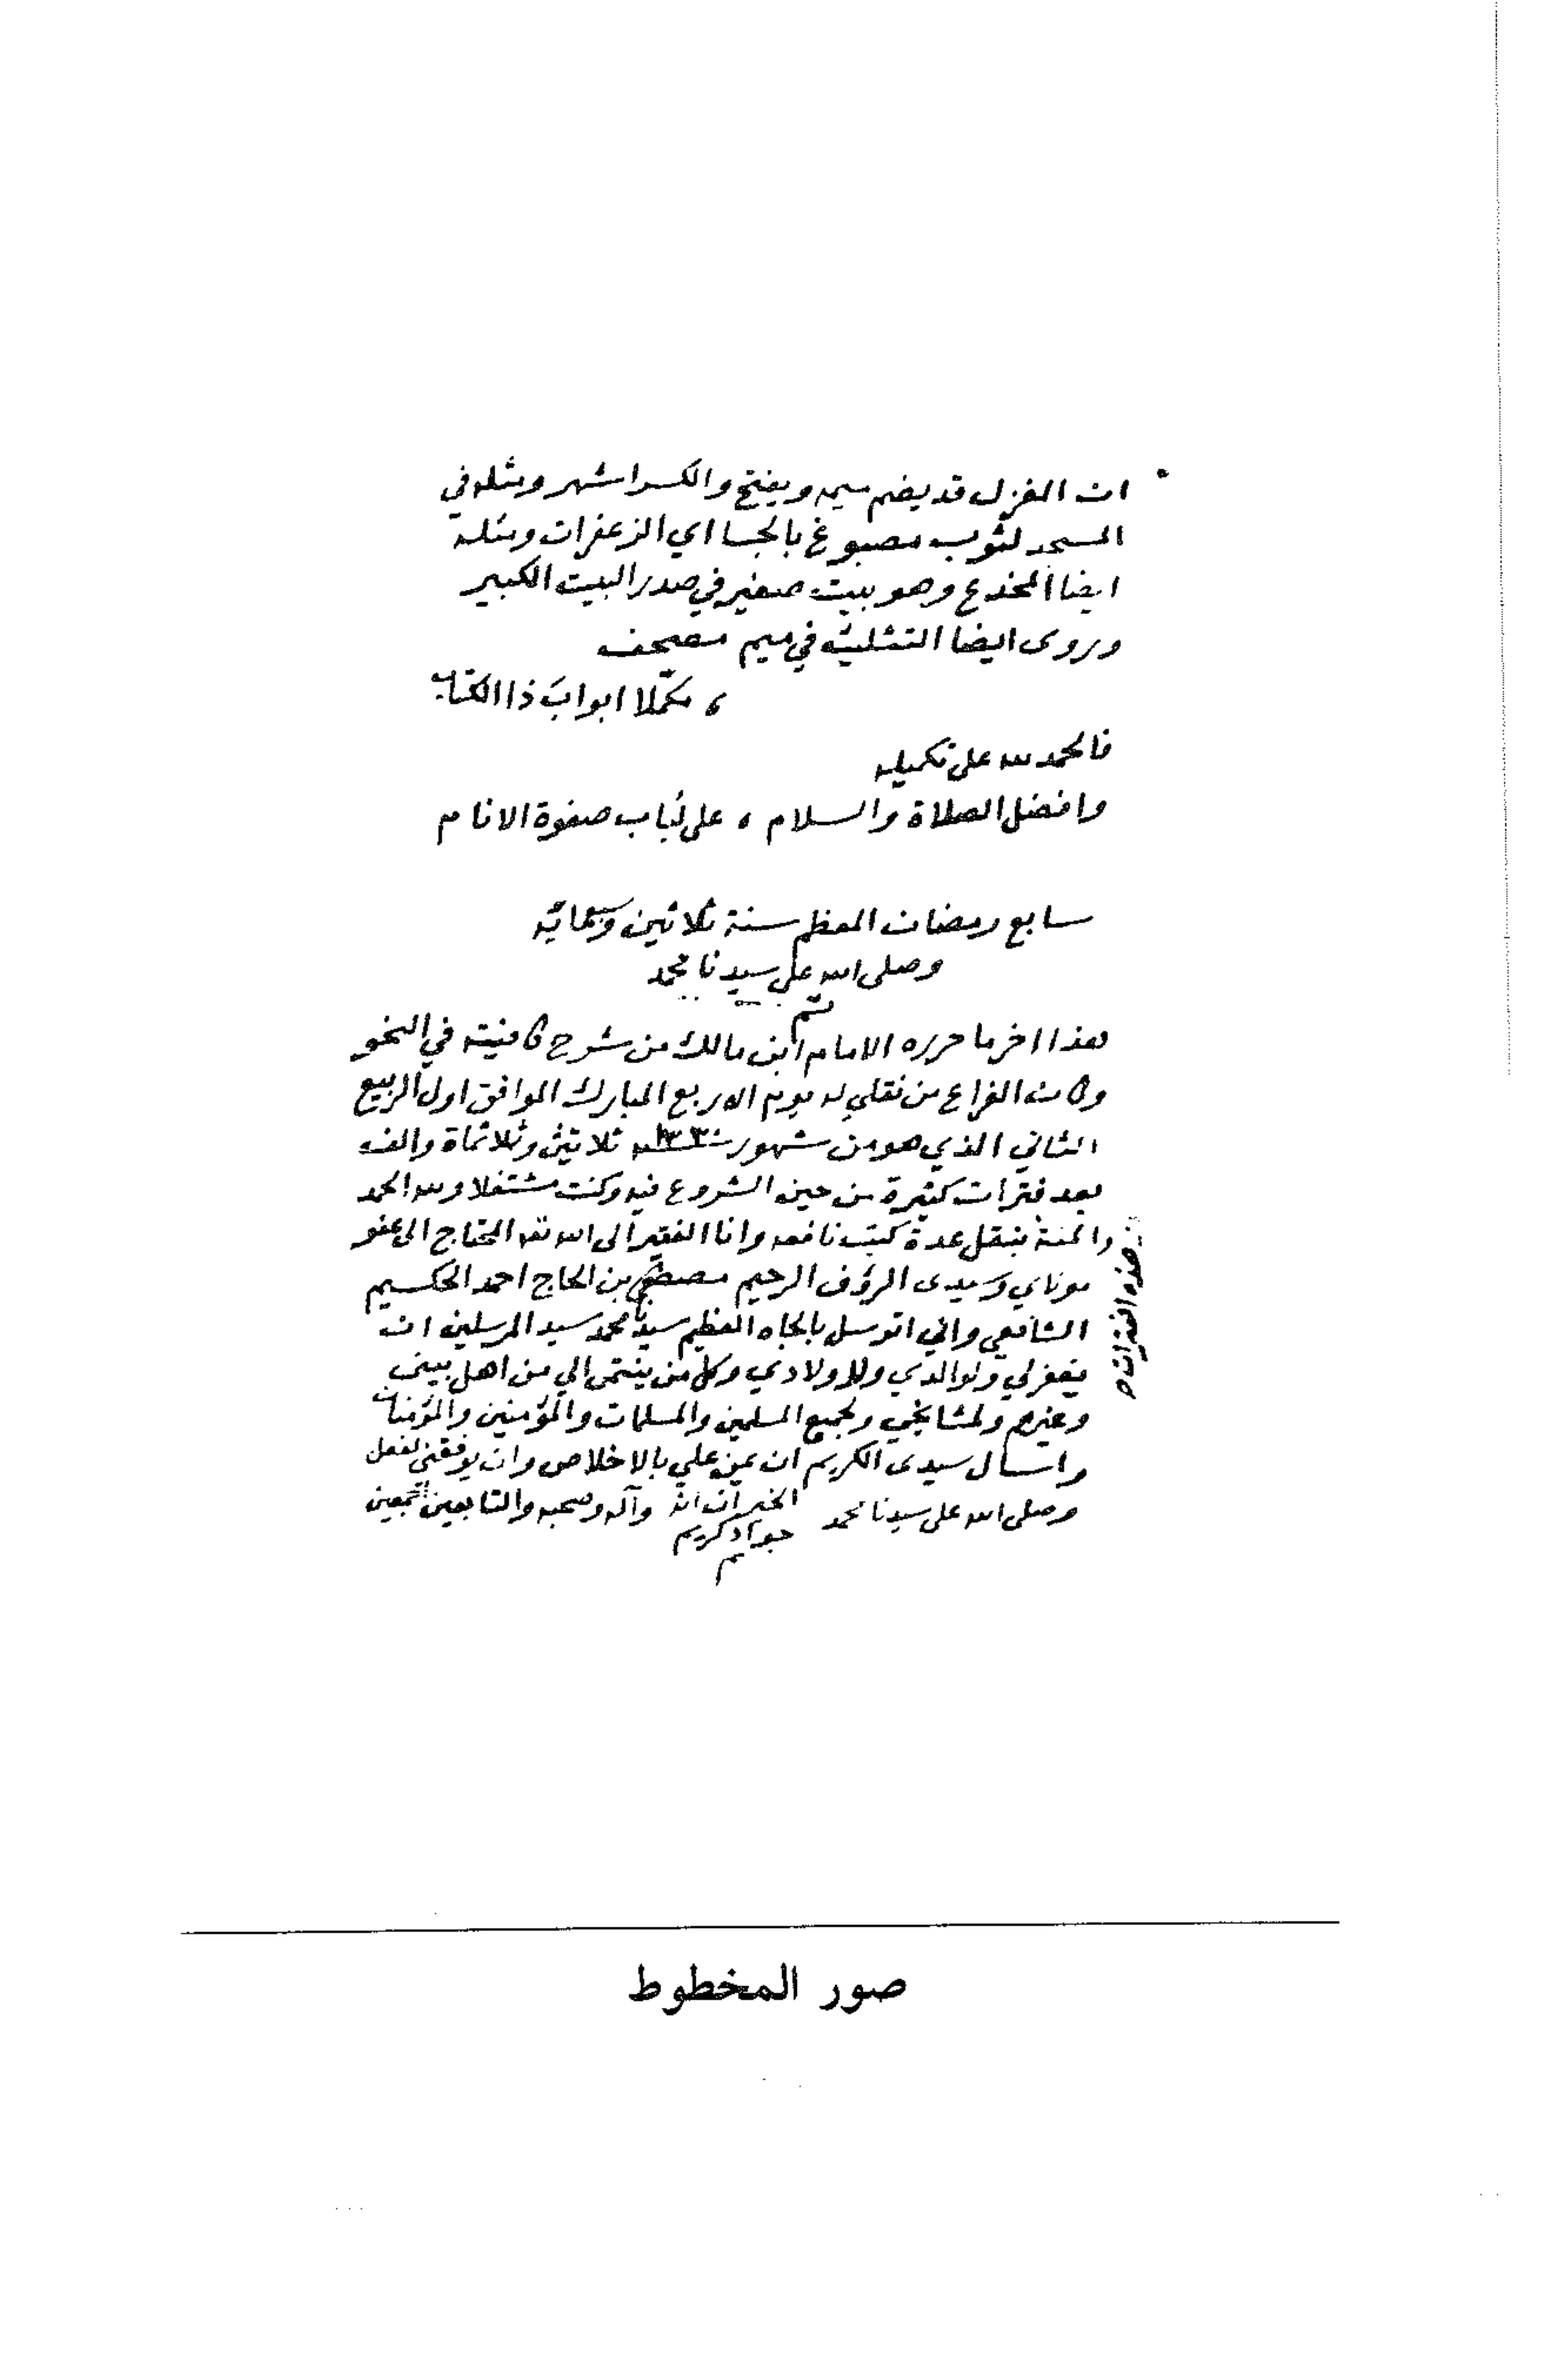 ان المغزل قد يضم ميمه ويفتح والكسر اشهر ومثله في
المسجد لثوب مصبوغ بالجسا اي الزعفران ومثله
ايضا المخدع وهو بيت صغير في صدر البيت الكبير
وروى ايضا التثليث في ميم مصحف
، مكمّلا ابوابَ ذا الكتاب
فالحمد لله على تكميله
وافضل الصلاة والسلام ، على لُباب صفوة الانام
سابع رمضان المعظم سنة ثلاثين وسبعماية
وصلى الله على سيدنا محمد
تم
هذا اخر ما حرره الامام ابن مالك من شرح كافيته في النحو
وكان الفراغ من نقلي له يوم الاربع المبارك الموافق اول الربيع
الثاني الذي هو من شهور سنة ١٣٣٠ ثلاثين وثلاثماة والف
بعد فترات كثيرة من حين الشروع فيه وكنت مشتغلا ولله الحمد
والمنة بنقل عدة كتب نافعه وانا الفقير الى الله تعه المحتاج الى عفو
هذه الفترات
مولاي وسيدى الرؤف الرحيم مصطفى بن الحاج احمد الحكسيم
الشافعي واني اتوسل بالجاه العظيم سيدنا محمد سيد المرسلين ان
يغفر لي ولوالدي وللاولادي وكل من ينتمى الي من اهل بيتى
وغيرهم ولمشايخي ولجميع المسلمين والمسلمات والمؤمنين والمؤمنات
واسال سيدى الكريم ان يمن علي بالاخلاص وان يوفقني لفعل
الخير انه جواد كريم
وصلى الله على سيدنا محمد وآله وصحبه والتابعين اجمعين
م
صور المخطوط